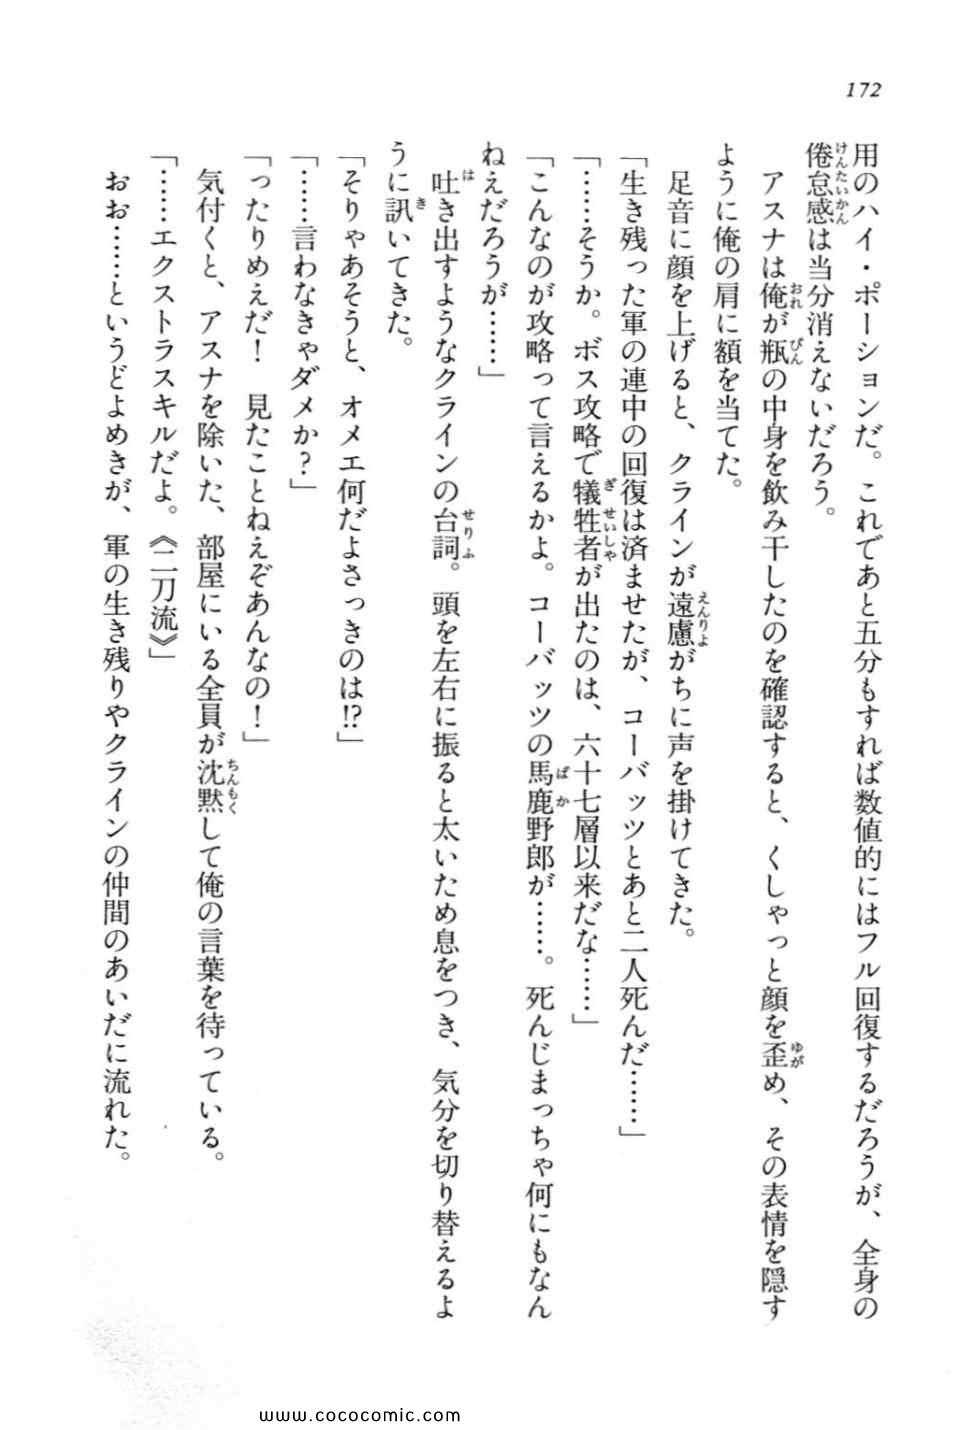 172
用のハイ・ポーションだ。これであと五分もすれば数値的にはフル回復するだろうが、全身の
倦怠感は当分消えないだろう。
アスナは俺が瓶の中身を飲み干したのを確認すると、くしゃっと顔を歪め、その表情を隠す
ように俺の肩に額を当てた。
足音に顔を上げると、クラインが遠慮がちに声を掛けてきた。
「生き残った軍の連中の回復は済ませたが、コーバッツとあと二人死んだ……」
「……そうか。ボス攻略で犠牲者が出たのは、六十七層以来だな……」
「こんなのが攻略って言えるかよ。コーバッツの馬鹿野郎が……。死んじまっちゃ何にもなん
ねえだろうが……」
吐き出すようなクラインの台詞。頭を左右に振ると太いため息をつき、気分を切り替えるよ
うに訊いてきた。
「そりゃあそうと、オメエ何だよさっきのは!?」
「……言わなきゃダメか？」
「ったりめえだ！　見たことねえぞあんなの！」
気付くと、アスナを除いた、部屋にいる全員が沈黙して俺の言葉を待っている。
「……エクストラスキルだよ。《二刀流》」
おお……というどよめきが、軍の生き残りやクラインの仲間のあいだに流れた。
www.cococomic.com